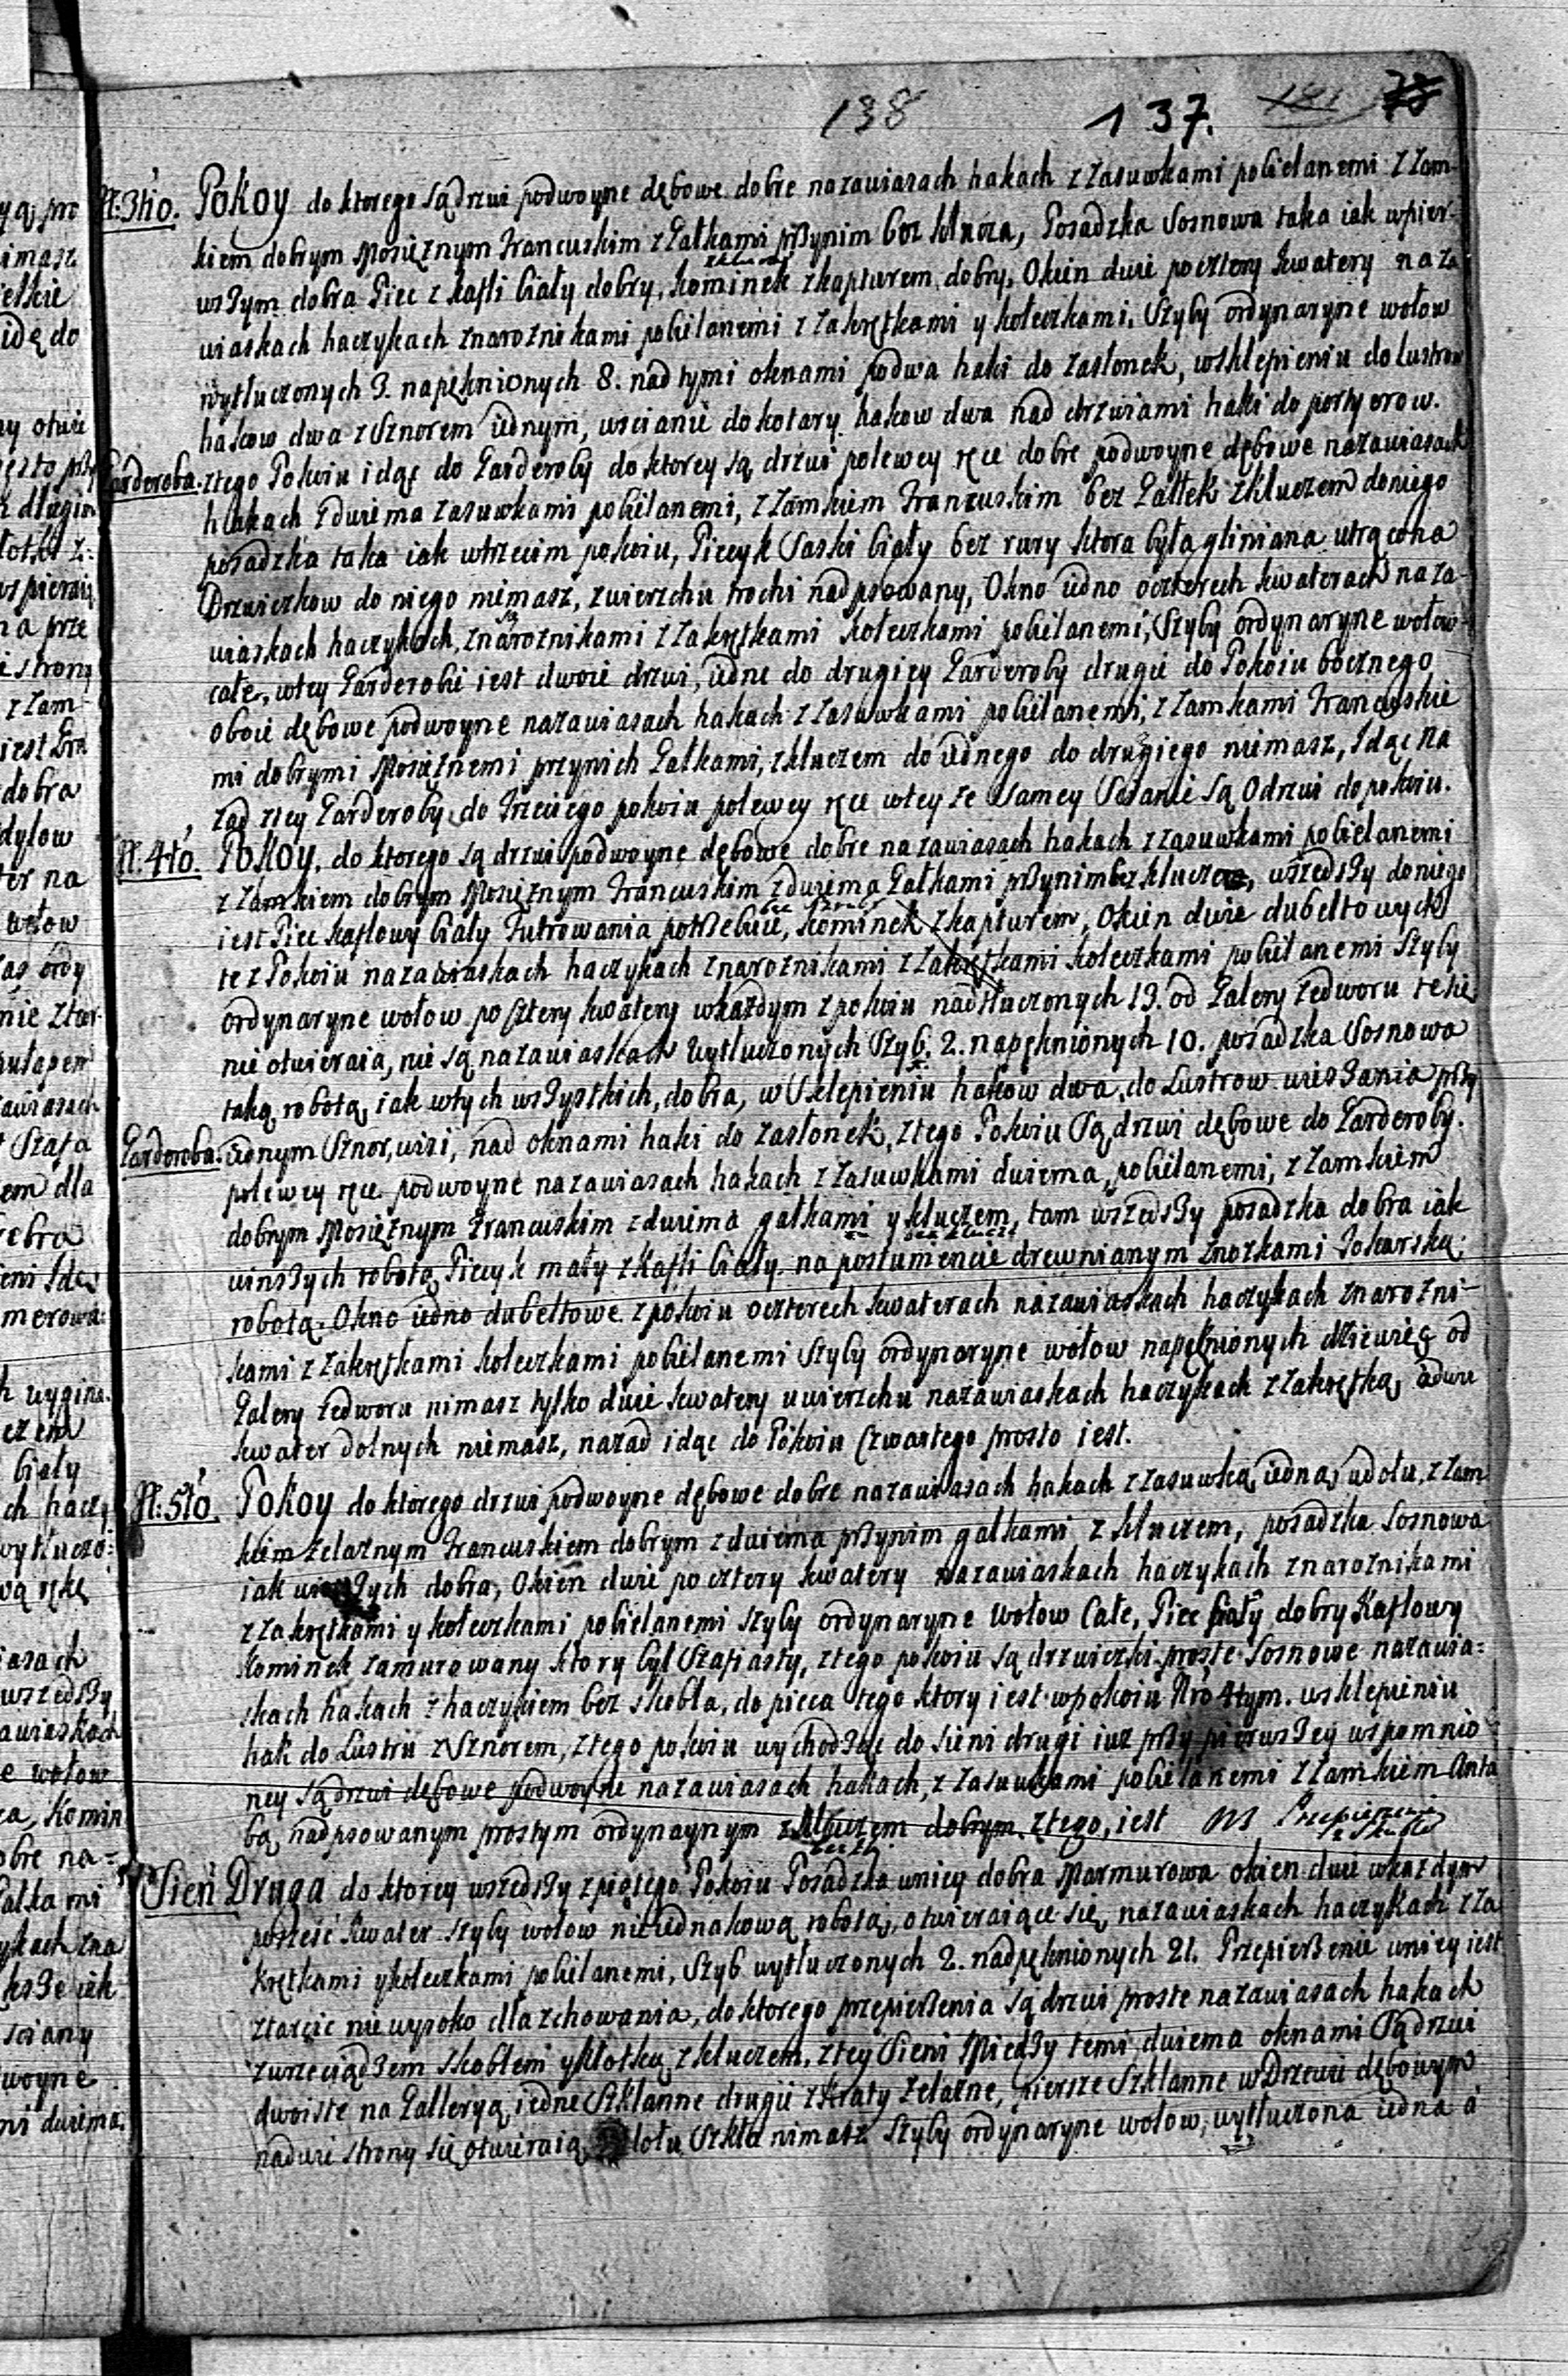 138 137. 78
N: 3tio. Pokoy do ktorego są drzwi podwoyne dębowe dobre na zawiasach hakach z zasuwkami pobielanemi z zam-
kiem dobrym Mosiężnym Francuskim z Gałkami przynim bez klucza, Posadzka Sosnowa taka iak wpier-
wszym dobra Piec z kafli biały dobry, kominek z kapturem dobry, Okien dwie po cztery kwatery na za
wiaskach haczykach z narożnikami pobielanemi z zakrętkami y kołeczkami, Szyby ordynaryne wołow
wytłuczonych 3. napęknionych 8. nad tymi oknami po dwa haki do zasłonek, w sklepieniu do lustrow
hakow dwa z Sznorem iednym, w scianie do kotary hakow dwa nad drzwiami haki do portyerow.
Garderoba. z tego Pokoiu idąc do Garderoby do ktorey są drzwi po lewey ręce dobre podwoyne dębowe na zawiasach
hakach z dwiema zasuwkami pobielanemi, z zamkiem Francuskim bez Gałtek z kluczem do niego
posadzka taka iak w trzecim pokoiu, Piecyk Saski biały bez rury ktora była gliniana utrącona
Drzwiczkow do niego niemasz, z wierzchu trochi nadpsowany, Okno iedno o czterech kwaterach na za-
wiaskach haczykach, z narożnikami z zakrętkami kołeczkami pobielanemi, Szyby ordynaryne wołow
całe, w tey Garderobie iest dwoie drzwi, iedne do drugiey Garderoby drugie do Pokoiu bocznego
oboie dębowe podwoyne na zawiasach hakach z zasuwkami pobielanemi, z zamkami Francuskie
mi dobrymi Mosiężnemi przy nich Gałkami, z kluczem do iednego do drugiego niemasz, Idąc na
zad z tey Garderoby do Trzeciego pokoiu po lewey ręce w tey ze Samey Scianie są Odrzwi do pokoiu.
N: 4to. Pokoy. do ktorego są drzwi podwoyne dębowe dobre na zawiasach hakach z zasuwkami pobielanemi
z zamkiem dobrym Mosiężnym Francuskim z dwiema Gałkami przynim bez klucza, wszedszy do niego
iest Piec kaflowy biały Futrowania potrzebuie, kominek z kapturem, Okien dwie dubeltowych
te z Pokoiu na zawiaskach haczykach z narożnikami z zakrętkami kołeczkami pobielanemi Szyby
ordynaryne wołow po cztery kwatery w każdym z pokoiu nadtłuczonych 13. od Galery ze dworu te się
nie otwieraią, nie są na zawiaskach wytłuczonych Szyb. 2. napęknionych 10. posadzka Sosnowa
taką robotą, iak w tych wszystkich, dobra, w Sklepieniu hakow dwa, do Lustrow wieszania przy
Garderoba. iednym Sznor, wisi, nad oknami haki do zasłonek, z tego Pokoiu Są drzwi dębowe do Garderoby.
po lewey ręce podwoyne na zawiasach hakach z zasuwkami dwiema, pobielanemi, z zamkiem
dobrym Mosiężnym Francuskim z dwiema gałkami y kluczem, tam wszedszy posadzka dobra iak
w inszych robotą Piecyk mały z kafli biały na postumencie drewnianym z nożkami Tokarską
robotą. Okno iedno dubeltowe z pokoiu o czterech kwaterach na zawiaskach haczykach z narożni-
kami z zakrętkami kołeczkami pobielanemi Szyby ordynaryne wołow napęknionych dziewięć od
Galery ze dworu nimasz tylko dwie kwatery u wierzchu na zawiaskach haczykach z zakrętką, a dwu
kwater dolnych niemasz, nazad idąc do Pokoiu Czwartego prosto iest.
N: 5to. Pokoy do ktorego drzwi podwoyne dębowe dobre na zawiasach hakach z zasuwką iedną u dołu, z zam
kiem żelaznym Francuskiem dobrym z dwiema przynim gałkami z kluczem, posadzka sosnowa
iak w inszych dobra, Okien dwie po cztery kwatery na zawiaskach haczykach z narożnikami
z zakrętkami y kołeczkami pobielanemi szyby ordynaryne wołow Całe, Piec biały dobry Kaflowy
Kominek zamurowany ktory był Szafiasty, z tego pokoiu są drzwiczki proste Sosnowe na zawia-
skach hakach z haczykiem bez skobla, do pieca tego ktory iest w pokoiu Nro 4tym. w sklepieniu
hak do Lustru z Sznorem, z tego pokoiu wychodząc do sieni drugi iuz przy pierwszey wspomnio
ney są drzwi dębowe podwoyne na zawiasach hakach, z zasuwkami pobielanemi z zamkiem Anta
bą nadpsowanym prostym ordynaynym z kluczem dobrym. z tego, iest
Sień Druga do ktorey wszedszy z piątego Pokoiu Posadzka w niey dobra Marmurowa okien dwie w każdym
po sześć kwater szyby wołow nie iednakową robotą, otwieraiące się na zawiaskach haczykach z za
krętkami y kołeczkami pobielanemi, Szyb wytłuczonych 2. nadpęknionych 21. Przepierzenie w niey iest
z tarcic nie wysoko dla zchowania, do ktorego przepierzenia są drzwi proste na zawiasach hakach
z wrzeciądzem skoblem y kłotką z kluczem, z tey Sieni Miedzy temi dwiema oknami Są drzwi
dwoiste na Galleryą iedne Szklanne drugie z kraty żelazne, piersze Szklanne w Drzewie dębowym
na dwie strony się otwieraią, dołu Szkła nimasz Szyby ordynaryne wołow, wytłuczona iedna a